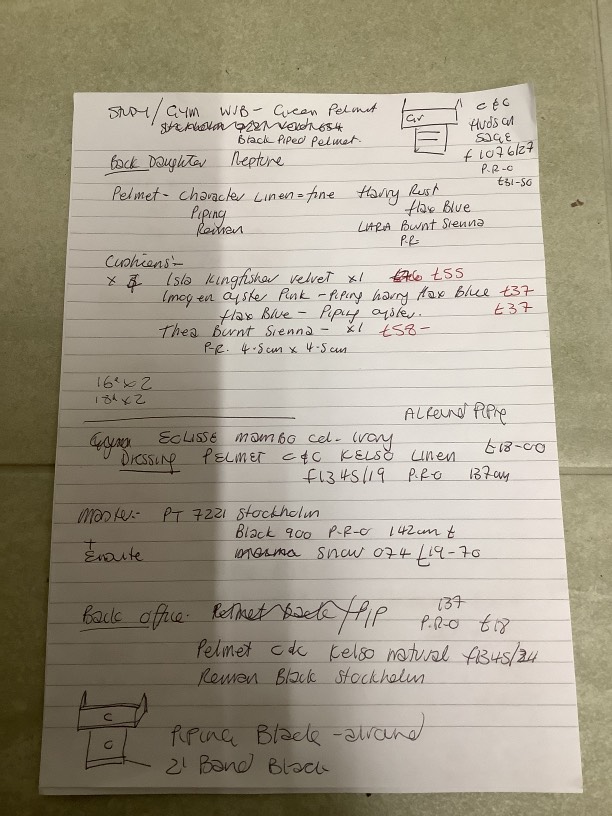 STUDY/ GYM W/B - Green Pelmet
Black Piped Pelmet.
Gr
C & C
Hudson
SAGE
f1076/27
P.R-O
£31-50
Back Daughter Neptune
Pelmet - Character Linen = fine Harry Rust
Piping flax Blue
Roman LARA Burnt Sienna
P.R-
Cushions:-
x Isla Kingfisher velvet x1 £55
Imogen oyster Pink - Piping harry flax Blue £37
flax Blue - Piping oyster. £37
Thea Burnt Sienna - x1 £58-
P.R. 4-5cm x 4-5cm
16" x 2
18" x 2
Alround Pipe
Eclisse mambo col - Ivory
Dressing PELMET C&C KELSO LINEN £18-00
f1345/19 P.R-O 137cm
Master:- PT 7221 Stockholm
Black 900 P-R-O 142cm £
+
Ensuite snow 074 £19-70
Back office. Pelmet back/PIP 137
P.R-O £18
Pelmet C&C Kelso natural f1345/24
Roman Black Stockholm
C
C
Piping Black - alround
2" Band Black